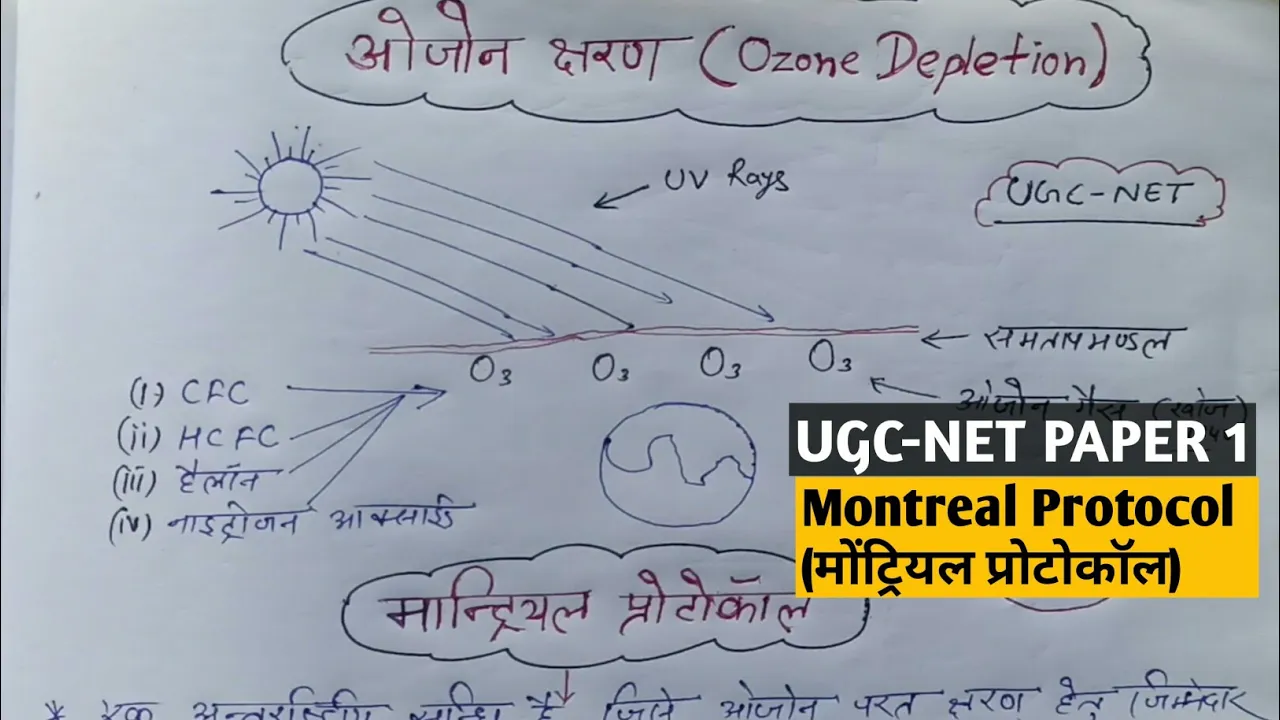 ओजोन क्षरण (Ozone Depletion)
UV Rays
UGC-NET
समतापमण्डल
O₃ O₃ O₃ O₃
(i) CFC
ओजोन गैस (खोज)
(ii) HCFC
(iii) हैलॉन
(iv) नाइट्रोजन आक्साईड
UGC-NET PAPER 1
Montreal Protocol
(मोंट्रियल प्रोटोकॉल)
मान्ट्रियल प्रोटोकॉल
* एक अन्तर्राष्ट्रीय सन्धि है जिसे ओजोन परत क्षरण हेतु जिम्मेदार